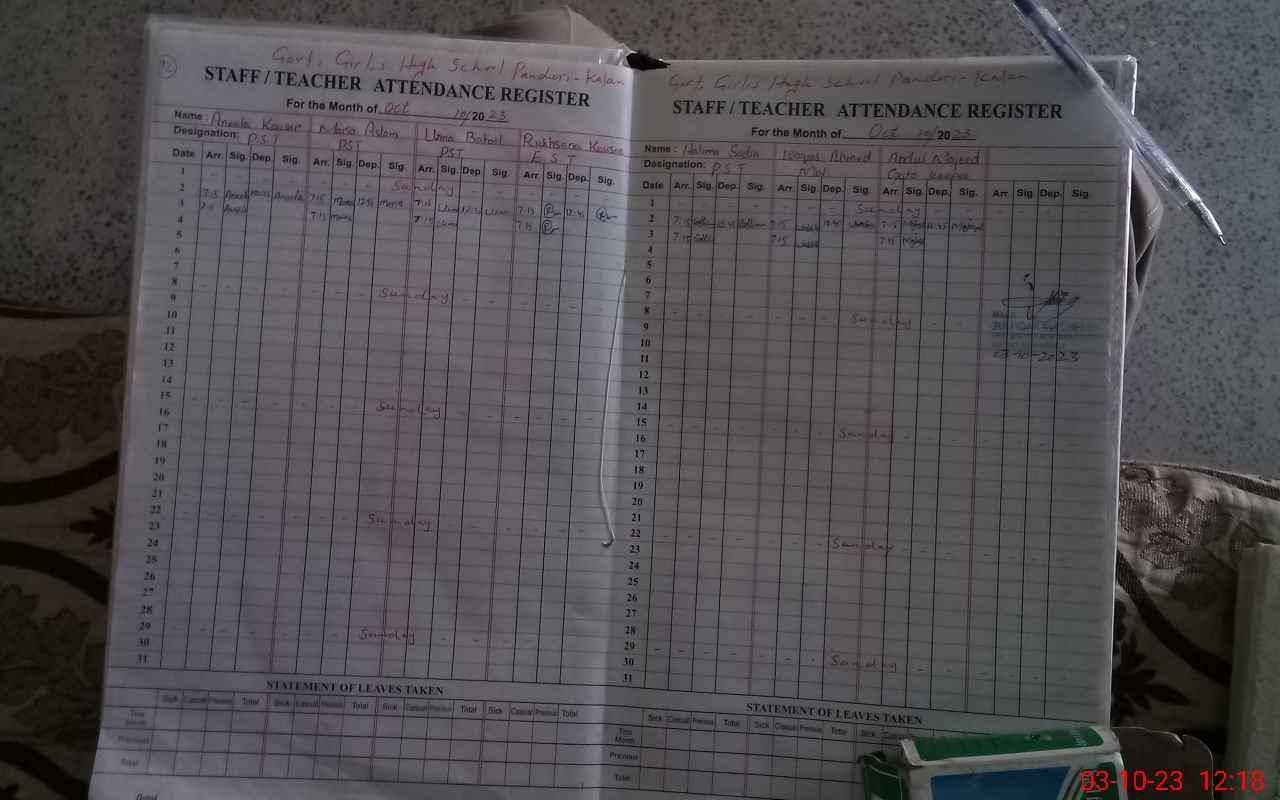 12
Govt. Girls High School Pandori-Kalan
STAFF / TEACHER ATTENDANCE REGISTER
For the Month of Oct 10/2023
Name : Aneela Kousar Maria Aslam Uzma Batool Rukhsana Kausar
Designation: P.S.T PST PST E.S.T
Date Arr. Sig. Dep. Sig. Arr. Sig. Dep. Sig. Arr. Sig. Dep. Sig. Arr. Sig. Dep. Sig.
1 Sunday
2 7:15 Aneela Aneela 7:15 Maria 12:45 Maria 7:15 7:15 12:45
3 7:15 Maria 7:15 7:15
4
5
6
7
8 Sunday
9
10
11
12
13
14
15 Sunday
16
17
18
19
20
21
22 Sunday
23
24
25
26
27
28
29 Sunday
30
31
STATEMENT OF LEAVES TAKEN
Sick Casual Previous Total Sick Casual Previous Total Sick Casual Previous Total Sick Casual Previous Total
This Month
Previous
Total
Govt. Girls High School Pandori-Kalan
STAFF / TEACHER ATTENDANCE REGISTER
For the Month of Oct 10/2023
Name : Halima Sadia Ahmed Abdul Majeed
Designation: P.S.T Gate Keeper
Date Arr. Sig. Dep. Sig. Arr. Sig. Dep. Sig. Arr. Sig. Dep. Sig. Arr. Sig. Dep. Sig.
1 Sunday
2 7:15 12:45 7:15 12:45 7:15 12:45
3 7:15 7:15 7:15
4
5
6
7
8 Sunday
9
10
03-10-2023
11
12
13
14
15 Sunday
16
17
18
19
20
21
22 Sunday
23
24
25
26
27
28
29 Sunday
30
31
STATEMENT OF LEAVES TAKEN
Sick Casual Previous Total Sick Casual Previous Total Sick
This Month
Previous
Total
03-10-23 12:18